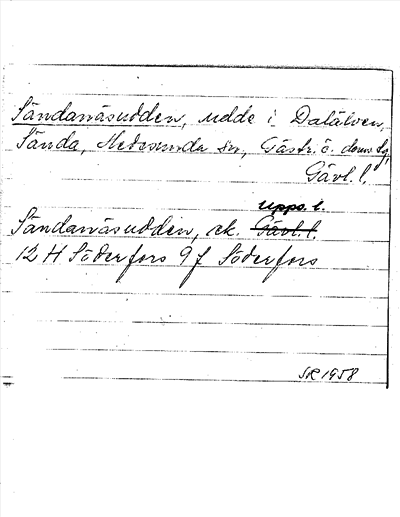 Sändanäsudden, udde i Dalälven,
Sända, Hedesunda sn, Gästr. ö. doms.
Gävl. l.
Upps. l.
Sändanäsudden, ek. Gävl. l.
12 H Söderfors 9 f Söderfors
SR 1958